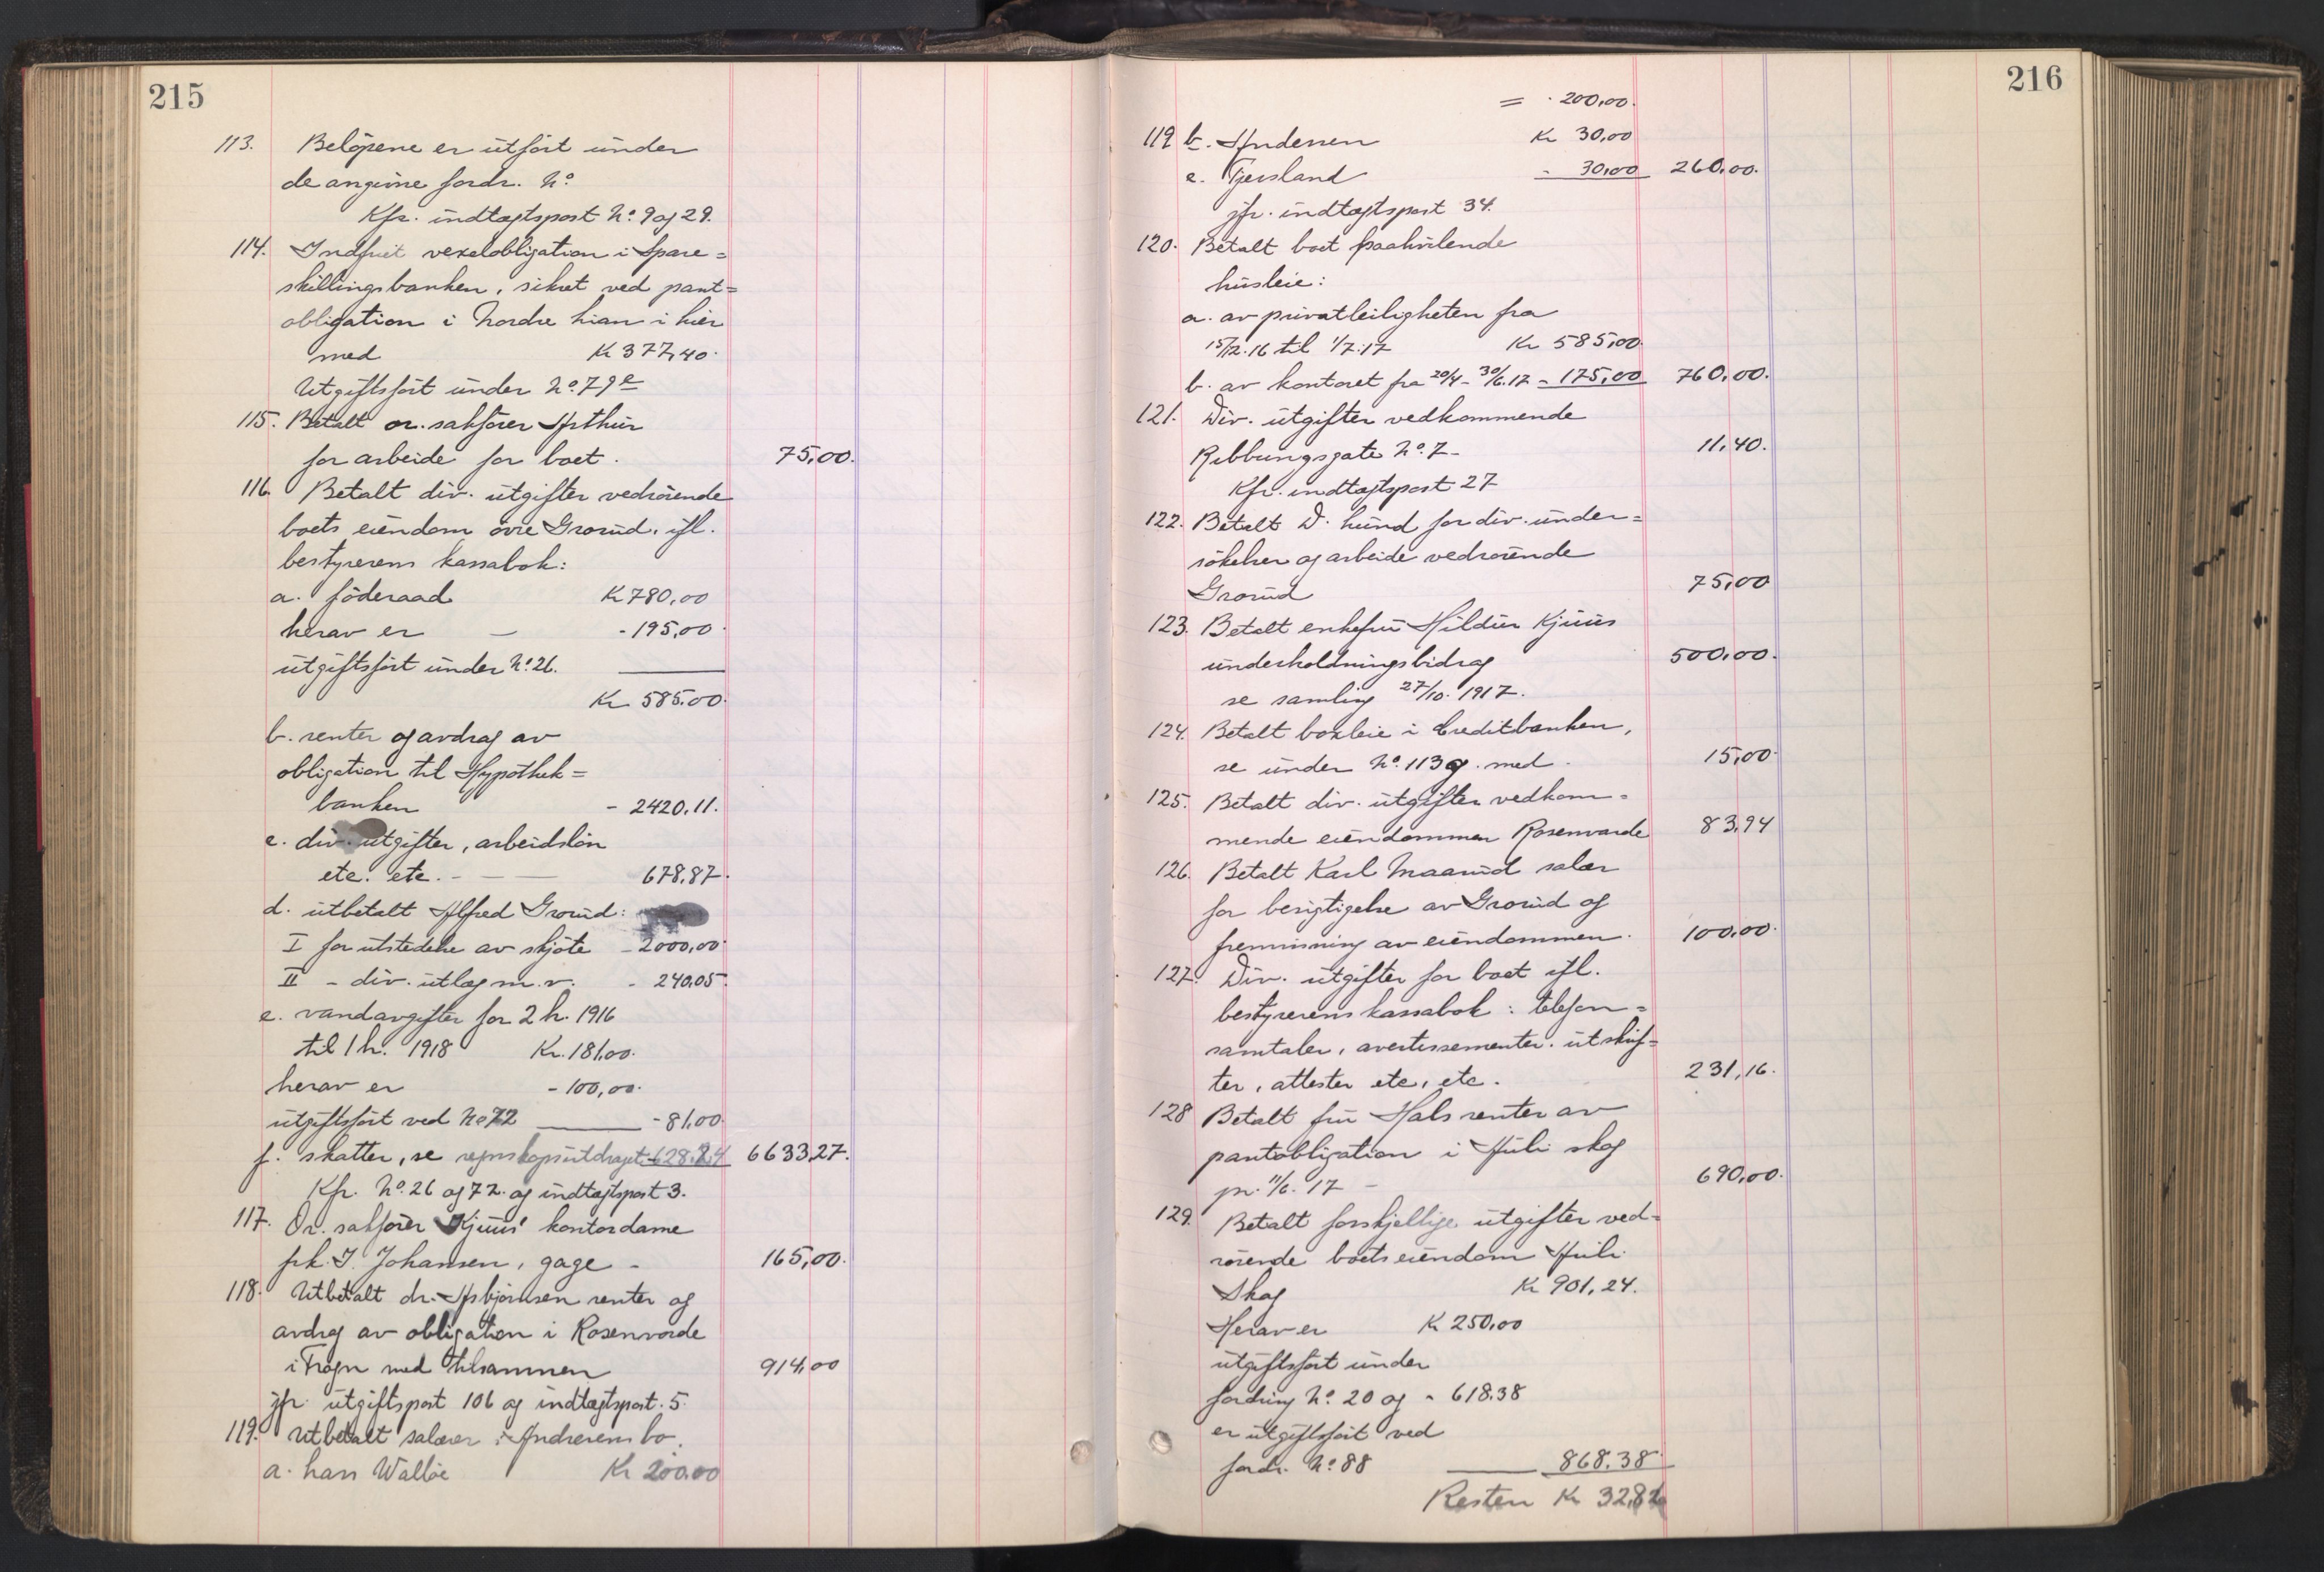 215
113. Beløpene er utført under
de angivne fordr. No.
Kfr. indtægtspost No. 9 og 29.
114. Indfriet vexelobligation i Spare=
skillingsbanken, sikret ved pant=
obligation i Nordre
med Kr 377,40.
Utgiftsført under No. 79e
115. Betalt or. sakfører Arthur
for arbeide for boet. 75,00.
116. Betalt div. utgifter vedrørende
boets eiendom øvre Grorud, ifl.
bestyrerens kassabok:
a. föderaad Kr 780,00
herav er — - 195,00.
utgiftsført under No. 26.
Kr 585.00.
b. renter og avdrag av
obligation til Hypothek=
banken - 2420.11.
c. div. utgifter, arbeidsløn
etc. etc. - — — 678.87.
d. utbetalt Alfred Grorud:
I for utstedelse av skjøte - 2000,00.
II - div. utlæg m. v. - 240.05.
e. vandavgifter for 2 h. 1916
til 1 h. 1918 Kr. 181.00.
herav er - 100,00.
utgiftsført ved No 72 - 81,00
f. skatter, se regnskapsutdraget - 628.24 6633,27.
Kfr. No. 26 og 72. og indtægtspost 3.
117. Or. sakfører Kjuus' kontordame
frk. I. Johansen, gage - 165,00.
118. Utbetalt dr. Asbjørnsen renter og
avdrag av obligation i Rosenvarde
i Frogn med tilsammen 914,00
jfr. utgiftspost 106 og indtægtspost. 5.
119. Utbetalt salærer i Andresens bo.
a. hans Walløe Kr 200.00
216
= . 200,00.
119 b. Andersen Kr 30,00
c. Tjersland - 30,00 260,00.
jfr. indtægtspost 34.
120. Betalt boet paahvilende
husleie:
a. av privatleiligheten fra
15/12.16 til 1/7.17 Kr 585,00.
b. av kontoret fra 20/4 - 30/6.17 - 175,00 760,00.
121. Div. utgifter vedkommende
Ribbungsgate No. 7 - 11,40.
Kfr. indtægtspost 27
122. Betalt D. Lund for div. under=
søkelser og arbeide vedrørende
Grorud 75,00
123. Betalt enkefru Hildur Kjuus
underholdningsbidrag 500,00.
se samling 27/10. 1917.
124. Betalt boxleie i Creditbanken,
se under No. 113 g. med. 15,00.
125. Betalt div. utgifter vedkom=
mende eiendommen Rosenvarde 83,94
126. Betalt Karl Maarud salær
for besigtigelse av Grorud og
fremvisning av eiendommen. 100,00.
127. Div. utgifter for boet ifl.
bestyrerens kassabok: telefon=
samtaler, avertissementer, utskrif=
ter, attester etc, etc. 231,16.
128 Betalt fru Hals renter av
pantobligation i Huli skog
pr. 11/6. 17 - 690,00.
129. Betalt forskjellige utgifter ved=
rørende boets eiendom Huli
Skog Kr 901,24.
Herav er Kr 250,00
utgiftsført under
fordring No. 20 og - 618.38
er utgiftsført ved
fordr. No. 88 868.38.
Resten Kr 32,86